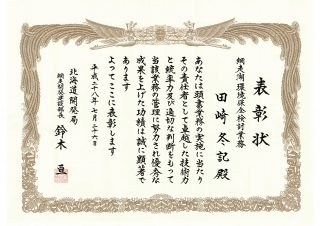 表彰状
網走湖環境保全検討業務
田崎冬記殿
あなたは頭書業務の実施に当たり
その責任者として卓越した技術力
と統率力及び適切な判断をもって
当該業務の管理に努力され優秀な
成果を上げた功績は誠に顕著で
あります
よってここに表彰します
平成二十八年七月二十六日
北海道開発局
網走開発建設部長
鈴木亘